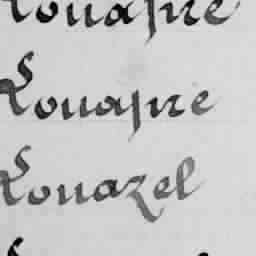 Louapre
Louapre
Louazel